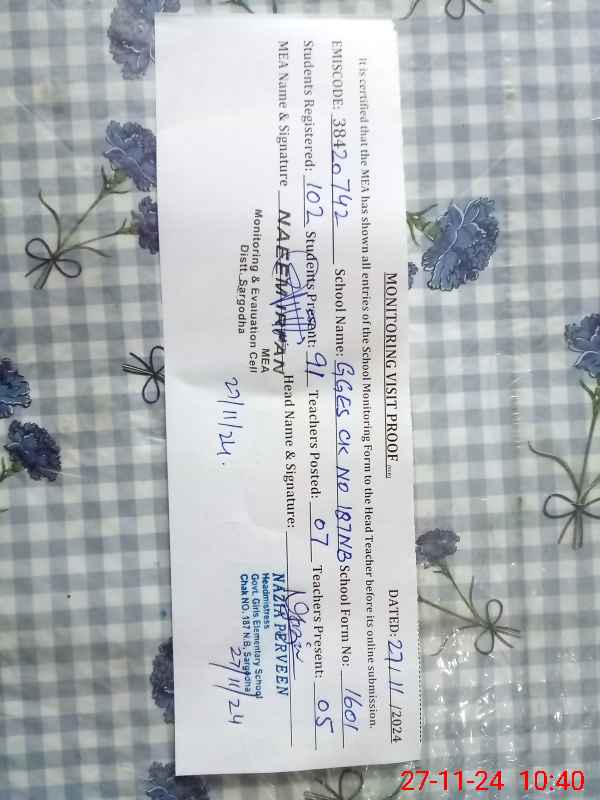 MONITORING VISIT PROOF
DATED: 27/11/2024
It is certified that the MEA has shown all entries of the School Monitoring Form to the Head Teacher before its online submission.
EMISCODE: 38420742 School Name: GGES CK NO 187NB School Form No: 1601
Students Registered: 102 Students Present: 91 Teachers Posted: 07 Teachers Present: 05
MEA Name & Signature NAEEM IRFAN Head Name & Signature:
MEA
Monitoring & Evaluation Cell
Distt. Sargodha
27/11/24.
NAZIR PERVEEN
Headmistress
Govt. Girls Elementary School
Chak NO. 187 N.B. Sargodha
27/11/24
27-11-24 10:40